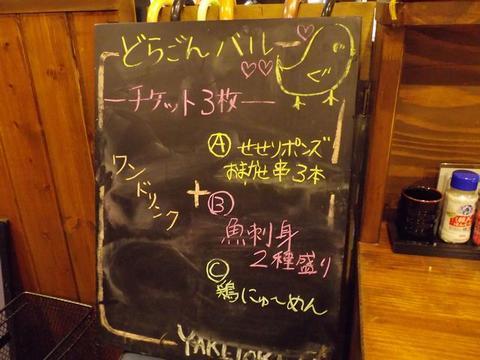 どらごんバル
チケット3枚
Ⓐ せせりポンズ
おまかせ串3本
ワンドリンク
+
Ⓑ
魚刺身
2種盛り
Ⓒ
鶏にゅ〜めん